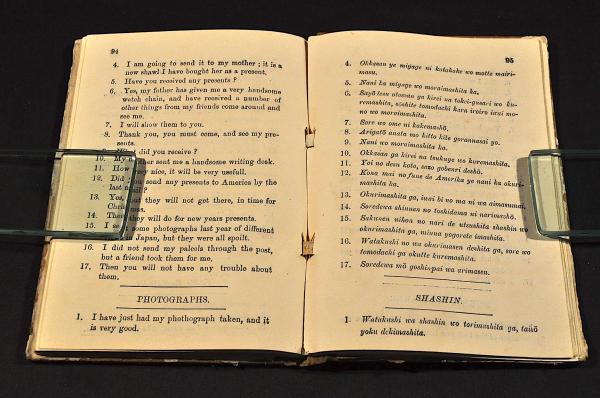 94
4. I am going to send it to my mother ; it is a
new shawl I have bought her as a present.
5. Have you received any presents ?
6. Yes, my father has given me a very handsome
watch chain, and have received a number of
other things from my friends come around and
see me.
7. I will show them to you.
8. Thank you, you must come, and see my pre-
sents.
did you receive ?
10. My sent me a handsome writing desk.
11. How very nice, it will be very usefull.
12. Did send any presents to America by the
last
13. Yes, but they will not get there, in time for
14. they will do for new years presents.
15. I some photographs last year of different
Japan, but they were all spoilt.
16. I did not send my palcels through the post,
but a friend took them for me.
17. Then you will not have any trouble about
them.
PHOTOGRAPHS.
1. I have just had my phothograph taken, and it
is very good.
95
4. Okkasan ye miyage ni katakake wo motte mairi-
masu.
5. Nani ka miyage wo moraimashita ka.
6. otossan ga kirei na tokei-gusari wo ku-
remashita, soshite tomodachi kara iroiro na mo-
no wo moraimashita.
7. Sore wo ome ni kakemashō.
8. Arigatō anata mo kitto kite gorannasai yo.
9. Nani wo moraimashita ka.
10. Okkasan ga kirei na tsukuye wo kuremashita.
11. Yoi no desu koto, sazo gobenri deshō.
12. Kono mai no fune de Amerika ye nani ka okuri-
mashita ka.
13. Okurimashita ga, iwai bi no ma ni wa aimasumai.
14. Soredewa shinnen no toshidama ni narimashō.
15. Sakunen nihon no nari de utsushita shashin wo
okurimashita ga, minna yogorete imashita.
16. Watakushi no wa okurimasen deshita ga, sore wo
tomodachi ga okutte kuremashita.
17. Soredewa mō goshinpai wa arimasen.
SHASHIN.
1. Watakushi wa shashin wo torimashita ga, taisō
yoku dekimashita.